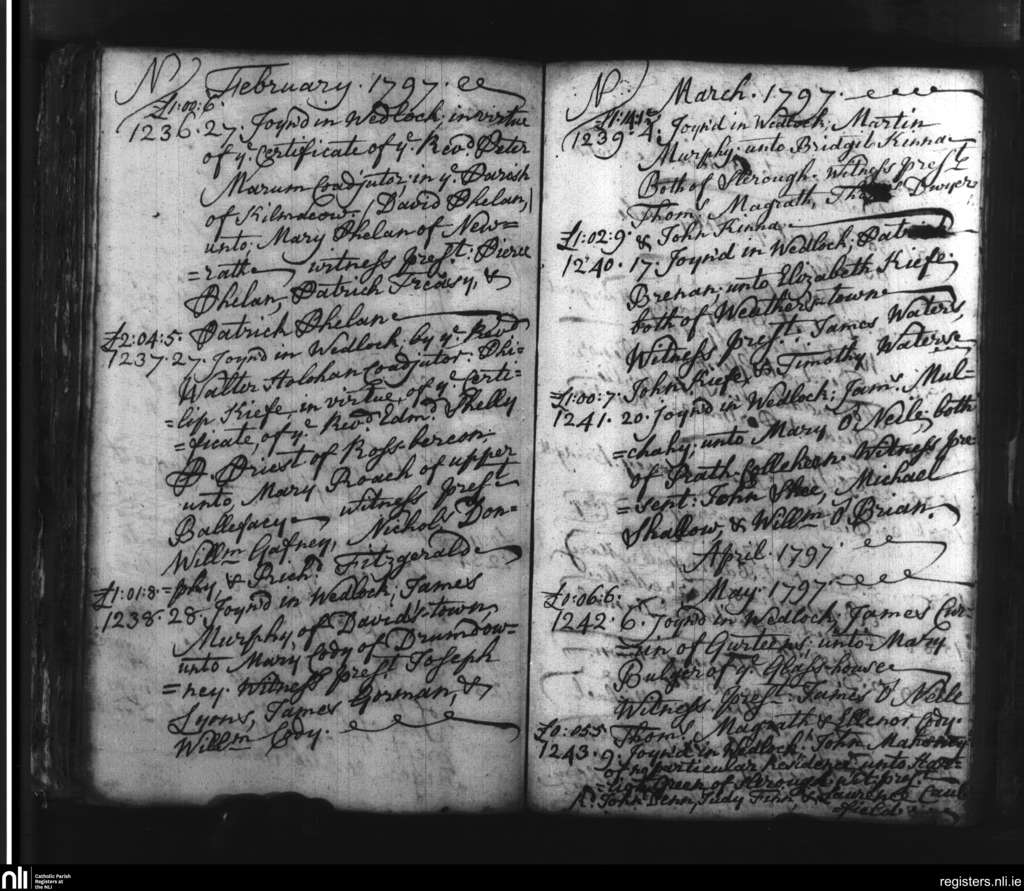 N° February. 1797.
£1:00:6.
1236. 27. Joyn'd in Wedlock; in virtue
of ye. Certificate of ye. Revd. Peter
Marum Coadjutor; in ye. Parish
of Kilmacow. (David Phelan,)
unto; Mary Phelan of New=
=rath witness prest: Pierce
Phelan, Patrick Treasy, &
£2:04:5. Patrick Phelan
1237. 27. Joyn'd in Wedlock by ye. Revd.
Walter Holohan Coadjutor: Phi=
=lip Kiefe, in virtue, of ye. Certi=
=ficate, of ye. Revd. Edmd. Shelly
P. Priest of Ross-bercon:
unto Mary Roach of upper
Ballefacy witness prest
Willm Gafney, Nichols. Don=
£1:01:8. =phy, & Richd. Fitzgerald
1238. 28. Joyn'd in Wedlock; James
Murphy of David's-town
unto Mary Cody of Drumdow=
=ney. Witness prest. Joseph
Lyons, James Gorman, &
Willm Cody.
N° March. 1797.
£1:14:1
1239. 4. Joyn'd in Wedlock; Martin
Murphy; unto Bridgit Kinna
Both of Slerough. Witness prest
Thoms. Magrath, Dwyer
£1:02:9. & John Kinna
1240. 17. Joyn'd in Wedlock; Patrick
Brenan; unto Elizabeth Kiefe;
both of Weatherstowne
Witness prest. James Waters,
£1:00:7. John Kiefe, & Timothy Waterse
1241. 20. Joyn'd in Wedlock; Jams. Mul=
=chahy; unto Mary O'Neile, both
of Rath- Witness pre
=sent: John Shee, Michael
Shallow, & Willm O'Brian.
April. 1797
May. 1797.
£0:06:6:
1242. 6. Joyn'd in Wedlock, James Cur=
=in of Gurteens; unto Mary
Bulger of ye. Glass-house
Witness prest James O'Neile
£0:05:5 Thoms. Magrath & Ellenor Cody.
1243. 9. Joyn'd in Wedlock. John Mahoney
of no particular Residence; unto
Green of Slerough. wit: prest.
John Denn, Judy Finn, & Laurence Caul=
=field.
nli Catholic Parish
Registers at
the NLI
registers.nli.ie